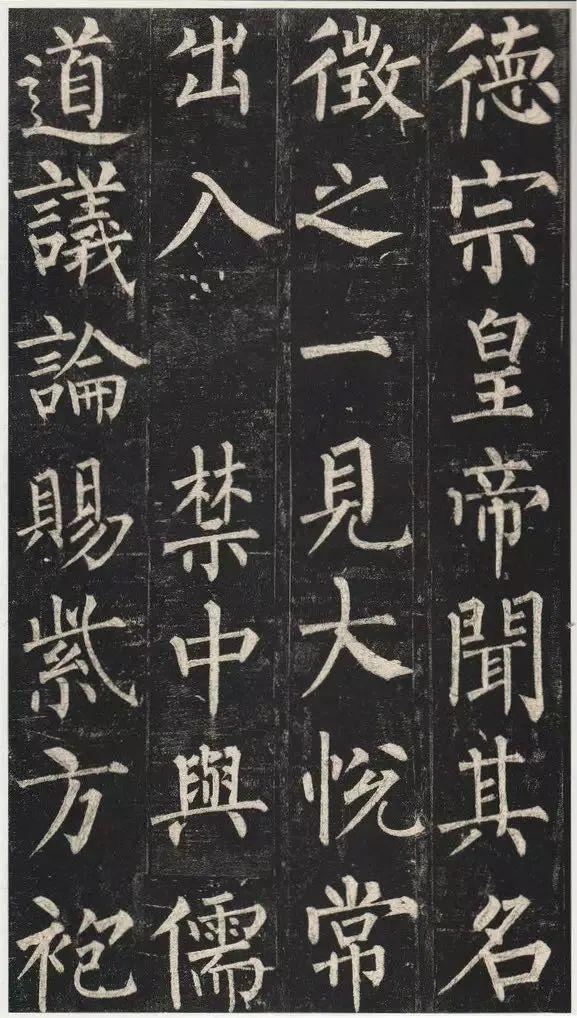 德宗皇帝聞其名
徵之一見大悅常
出入禁中與儒
道議論賜紫方
袍